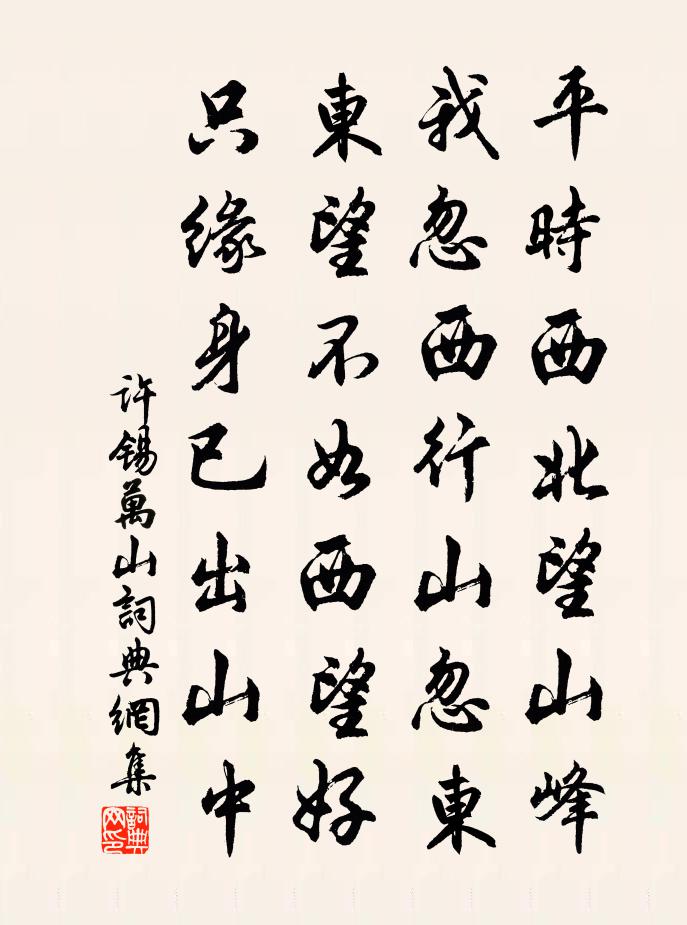 平時西北望山峰
我忽西行山忽東
東望不如西望好
只緣身已出山中
許錫萬山詞典網集
詞典網印